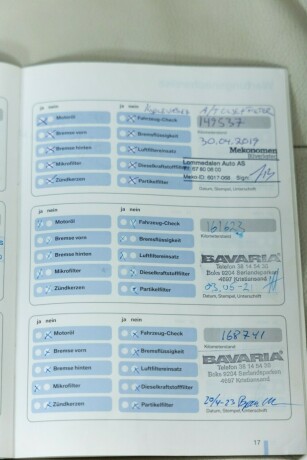 ja nein
ja nein
Motoröl
Fahrzeug-Check
Bremse vorn
Bremsflüssigkeit
Bremse hinten
Luftfiltereinsatz
Mikrofilter
Dieselkraftstofffilter
Zündkerzen
Partikelfilter
149537
Kilometerstand
30.04.2019
Mekonomen
Bilverksted
Lommedalen Auto AS
Sign.
Datum, Stempel, Unterschrift
ja nein
ja nein
Motoröl
Fahrzeug-Check
Bremse vorn
Bremsflüssigkeit
Bremse hinten
Luftfiltereinsatz
Mikrofilter
Dieselkraftstofffilter
Zündkerzen
Partikelfilter
Kilometerstand
BAVARIA
Telefon 38 14 54 30
4697 Kristiansand
03.05-21
Datum, Stempel, Unterschrift
ja nein
ja nein
Motoröl
Fahrzeug-Check
Bremse vorn
Bremsflüssigkeit
Bremse hinten
Luftfiltereinsatz
Mikrofilter
Dieselkraftstofffilter
Zündkerzen
Partikelfilter
168741
Kilometerstand
BAVARIA
Telefon 38 14 54 30
4697 Kristiansand
Datum, Stempel, Unterschrift
17